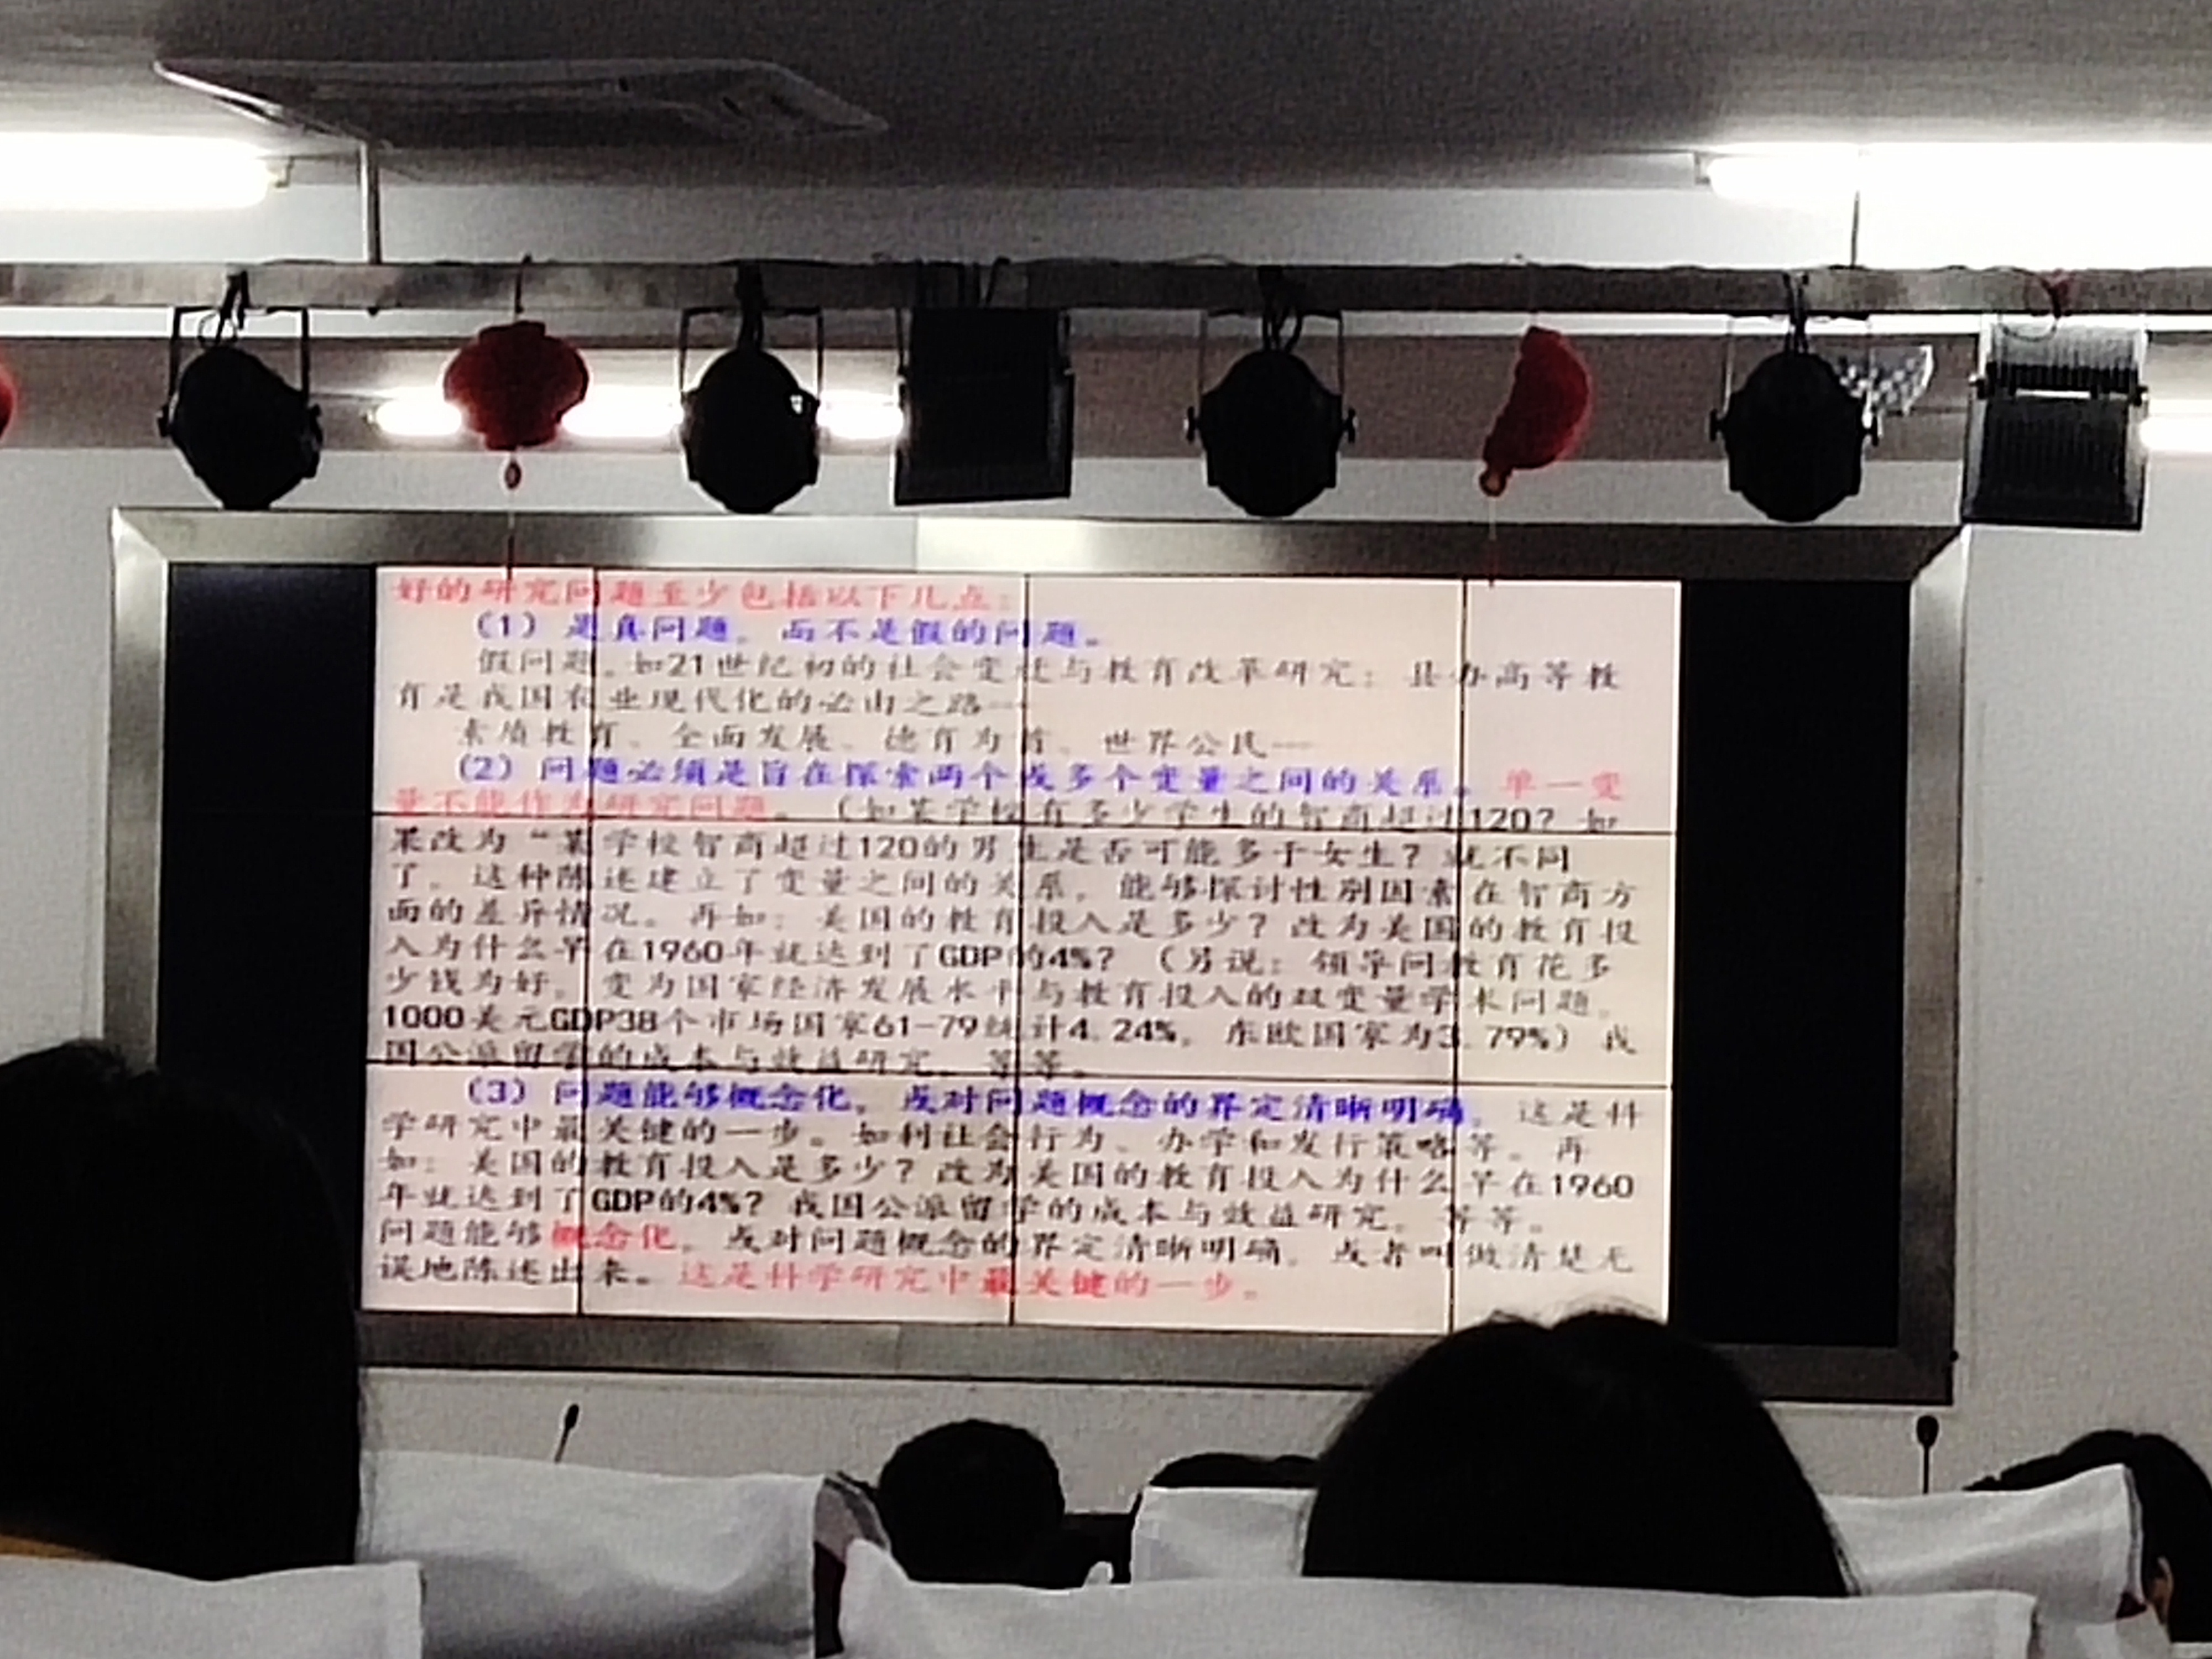 好的研究问题至少包括以下几点：
（1）是真问题，而不是假的问题。
假问题。如21世纪初的社会变迁与教育改革研究；县办高等教
育是我国农业现代化的必由之路—
素质教育、全面发展、德育为首、世界公民—
（2）问题必须是旨在探索两个或多个变量之间的关系。单一变
量不能作为研究问题。（如某学校有多少学生的智商超过120？如
果改为“某学校智商超过120的男生是否可能多于女生？就不同
了。这种陈述建立了变量之间的关系，能够探讨性别因素在智商方
面的差异情况。再如：美国的教育投入是多少？改为美国的教育投
入为什么早在1960年就达到了GDP的4%？（另说：领导问教育花多
少钱为好，变为国家经济发展水平与教育投入的双变量学术问题。
1000美元GDP38个市场国家61-79统计4.24%，东欧国家为3.79%）我
国公派留学的成本与效益研究，等等。
（3）问题能够概念化，或对问题概念的界定清晰明确，这是科
学研究中最关键的一步。如利社会行为、办学和发行策略等。再
如：美国的教育投入是多少？改为美国的教育投入为什么早在1960
年就达到了GDP的4%？我国公派留学的成本与效益研究，等等。
问题能够概念化，或对问题概念的界定清晰明确，或者叫做清楚无
误地陈述出来。这是科学研究中最关键的一步。